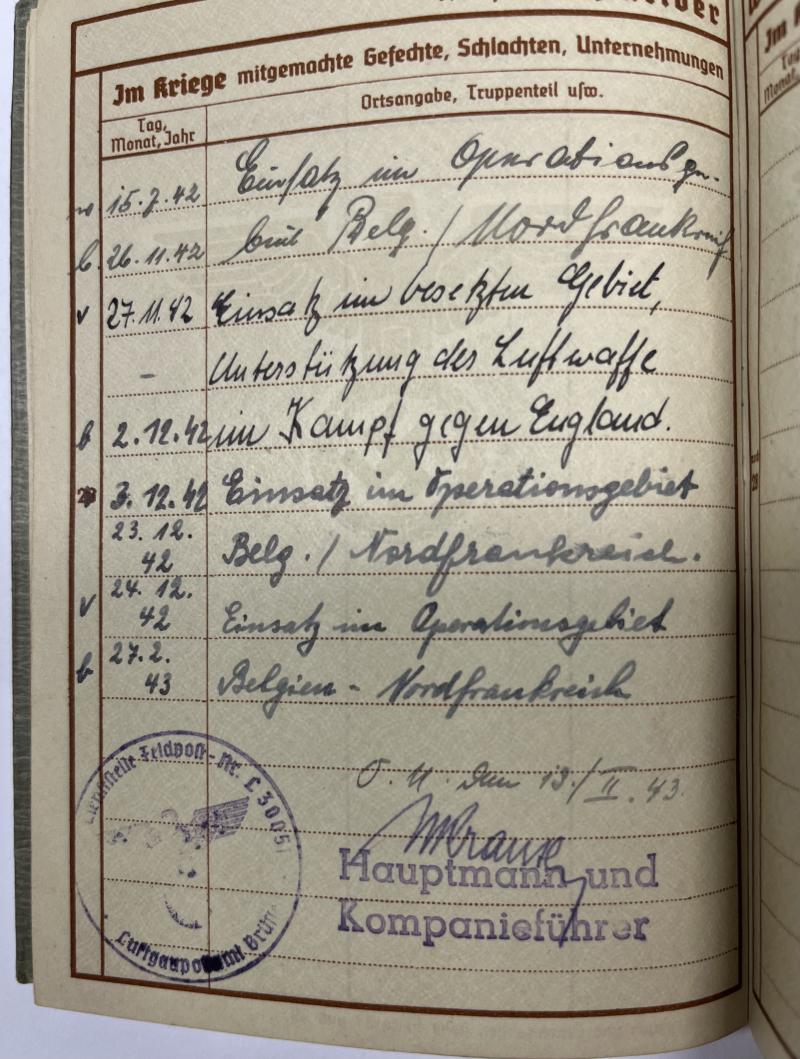 Im Kriege mitgemachte Gefechte, Schlachten, Unternehmungen
Tag, Monat, Jahr
Ortsangabe, Truppenteil usw.
15.7.42 Einsatz im Operationsge-
b. 26.11.42 biet Belg. / Nordfrankreich
v 27.11.42 Einsatz im besetzten Gebiet,
– Unterstützung der Luftwaffe
b 2.12.42 im Kampf gegen England.
3.12.42 Einsatz im Operationsgebiet
23.12.42 Belg. / Nordfrankreich.
v 24.12.42 Einsatz im Operationsgebiet
b 27.2.43 Belgien - Nordfrankreich
O. U. den 13./II.43.
Hauptmann und
Kompanieführer
Dienststelle Feldpost-Nr. L 30051
Luftgaupostamt
28